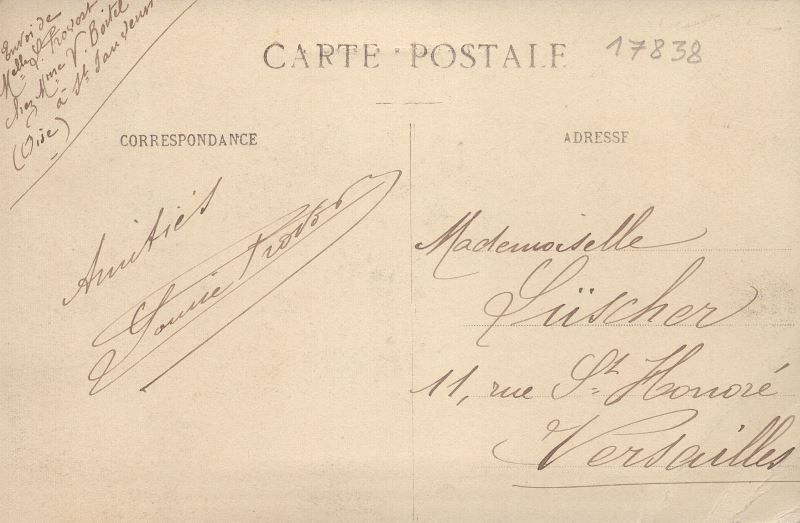 Envoi de
Melle L. Provost
chez Mme V. Boitel
à St Sauveur
(Oise)
CARTE POSTALE
17838
CORRESPONDANCE
ADRESSE
Amitiés
Louise Provost
Mademoiselle
Lüscher
11, rue St Honoré
Versailles